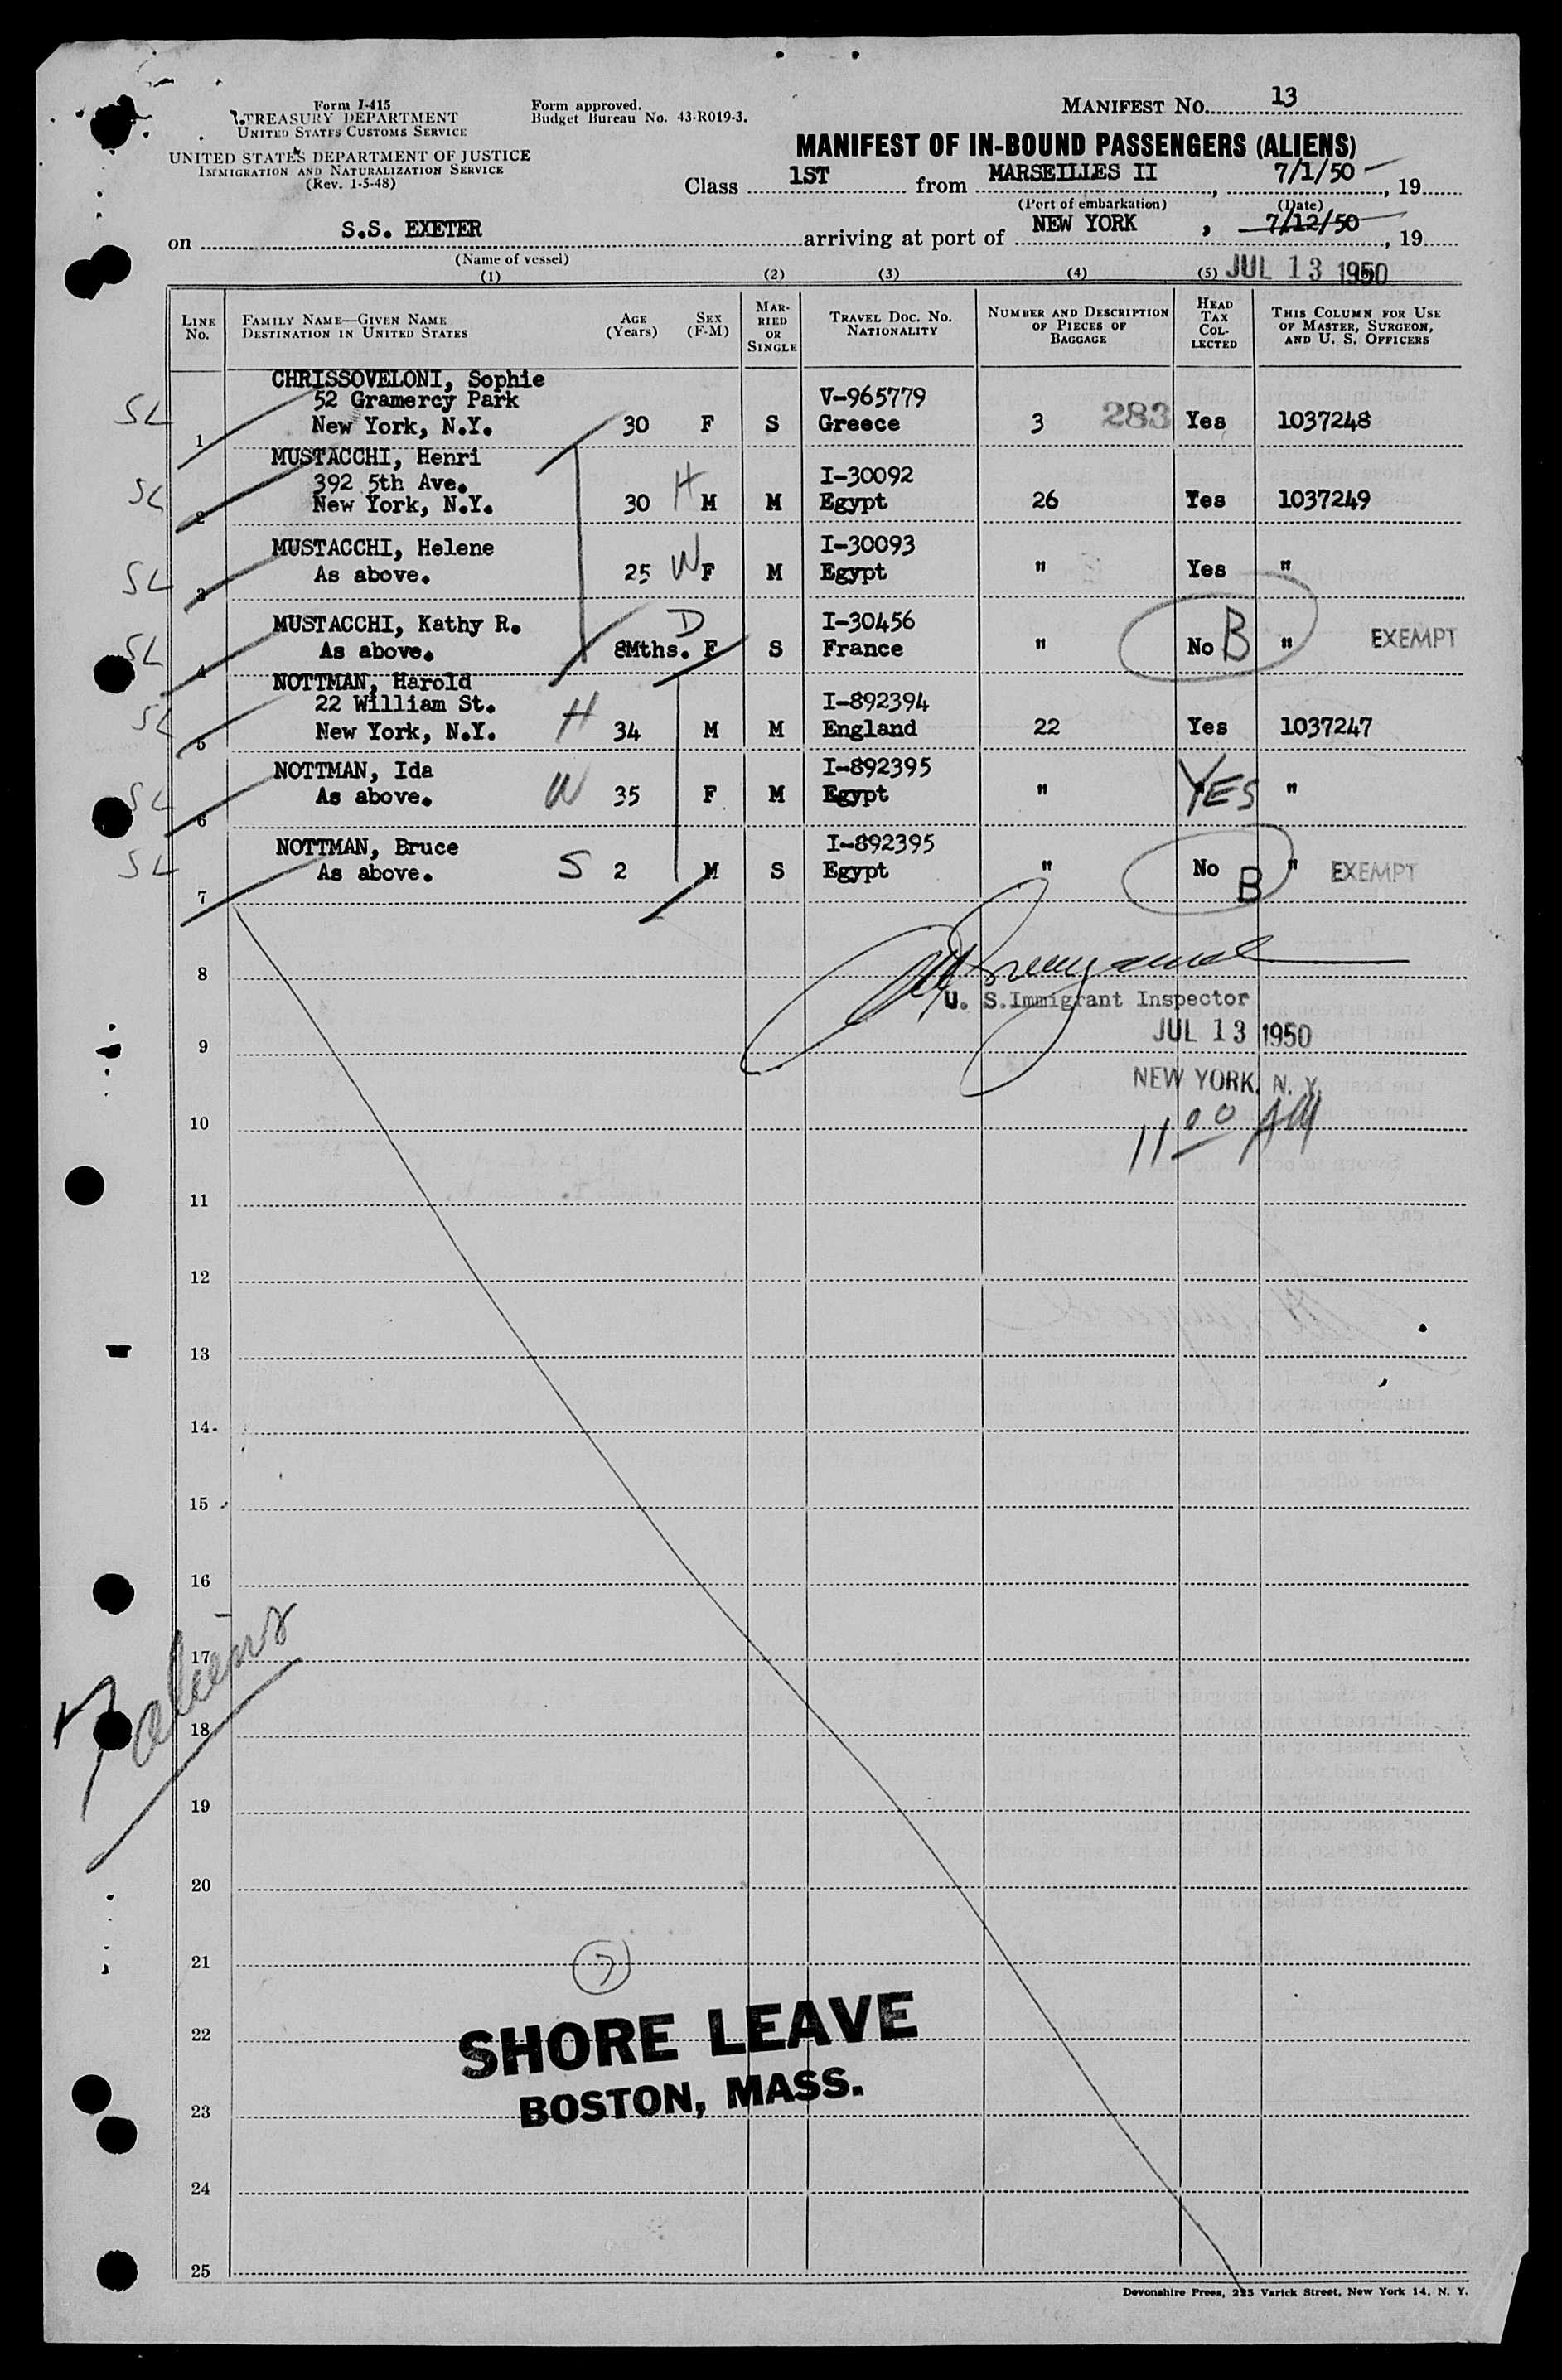 Form I-415
TREASURY DEPARTMENT
UNITED STATES CUSTOMS SERVICE
UNITED STATES DEPARTMENT OF JUSTICE
IMMIGRATION AND NATURALIZATION SERVICE
(Rev. 1-5-48)
Form approved.
Budget Bureau No. 43-R019-3.
MANIFEST NO. 13
MANIFEST OF IN-BOUND PASSENGERS (ALIENS)
Class 1ST from MARSEILLES II, 7/1/50, 19
(Port of embarkation) (Date)
on S.S. EXETER arriving at port of NEW YORK, 7/12/50, 19
(Name of vessel)
JUL 13 1950
(1) (2) (3) (4) (5)
LINE No. FAMILY NAME—GIVEN NAME DESTINATION IN UNITED STATES AGE (Years) SEX (F-M) MARRIED OR SINGLE TRAVEL DOC. NO. NATIONALITY NUMBER AND DESCRIPTION OF PIECES OF BAGGAGE HEAD TAX COLLECTED THIS COLUMN FOR USE OF MASTER, SURGEON, AND U. S. OFFICERS
CHRISSOVELONI, Sophie
52 Gramercy Park V-965779
SL 1 New York, N.Y. 30 F S Greece 3 283 Yes 1037248
MUSTACCHI, Henri
392 5th Ave. I-30092
SL 2 New York, N.Y. 30 H M M Egypt 26 Yes 1037249
MUSTACCHI, Helene I-30093
SL 3 As above. 25 W F M Egypt " Yes "
MUSTACCHI, Kathy R. D I-30456
SL 4 As above. 8Mths. F S France " No B " EXEMPT
NOTTMAN, Harold
22 William St. I-892394
SL 5 New York, N.Y. H 34 M M England 22 Yes 1037247
NOTTMAN, Ida I-892395
SL 6 As above. W 35 F M Egypt " YES "
NOTTMAN, Bruce I-892395
SL 7 As above. S 2 M S Egypt " No B " EXEMPT
8
U. S. Immigrant Inspector
9 JUL 13 1950
NEW YORK, N. Y.
10
11 00 AM
11
12
13
14
15
16
17
7 aliens
18
19
20
21
7
22
SHORE LEAVE
23
BOSTON, MASS.
24
25
Devonshire Press, 225 Varick Street, New York 14, N. Y.